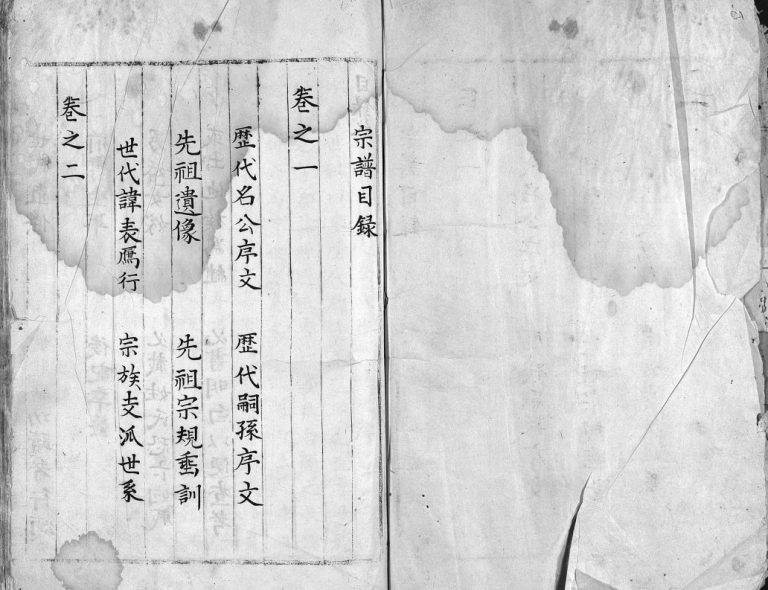 宗譜目録
卷之一
歴代名公序文 歴代嗣孫序文
先祖遺像 先祖宗規垂訓
世代諱表鴈行 宗族支派世系
卷之二